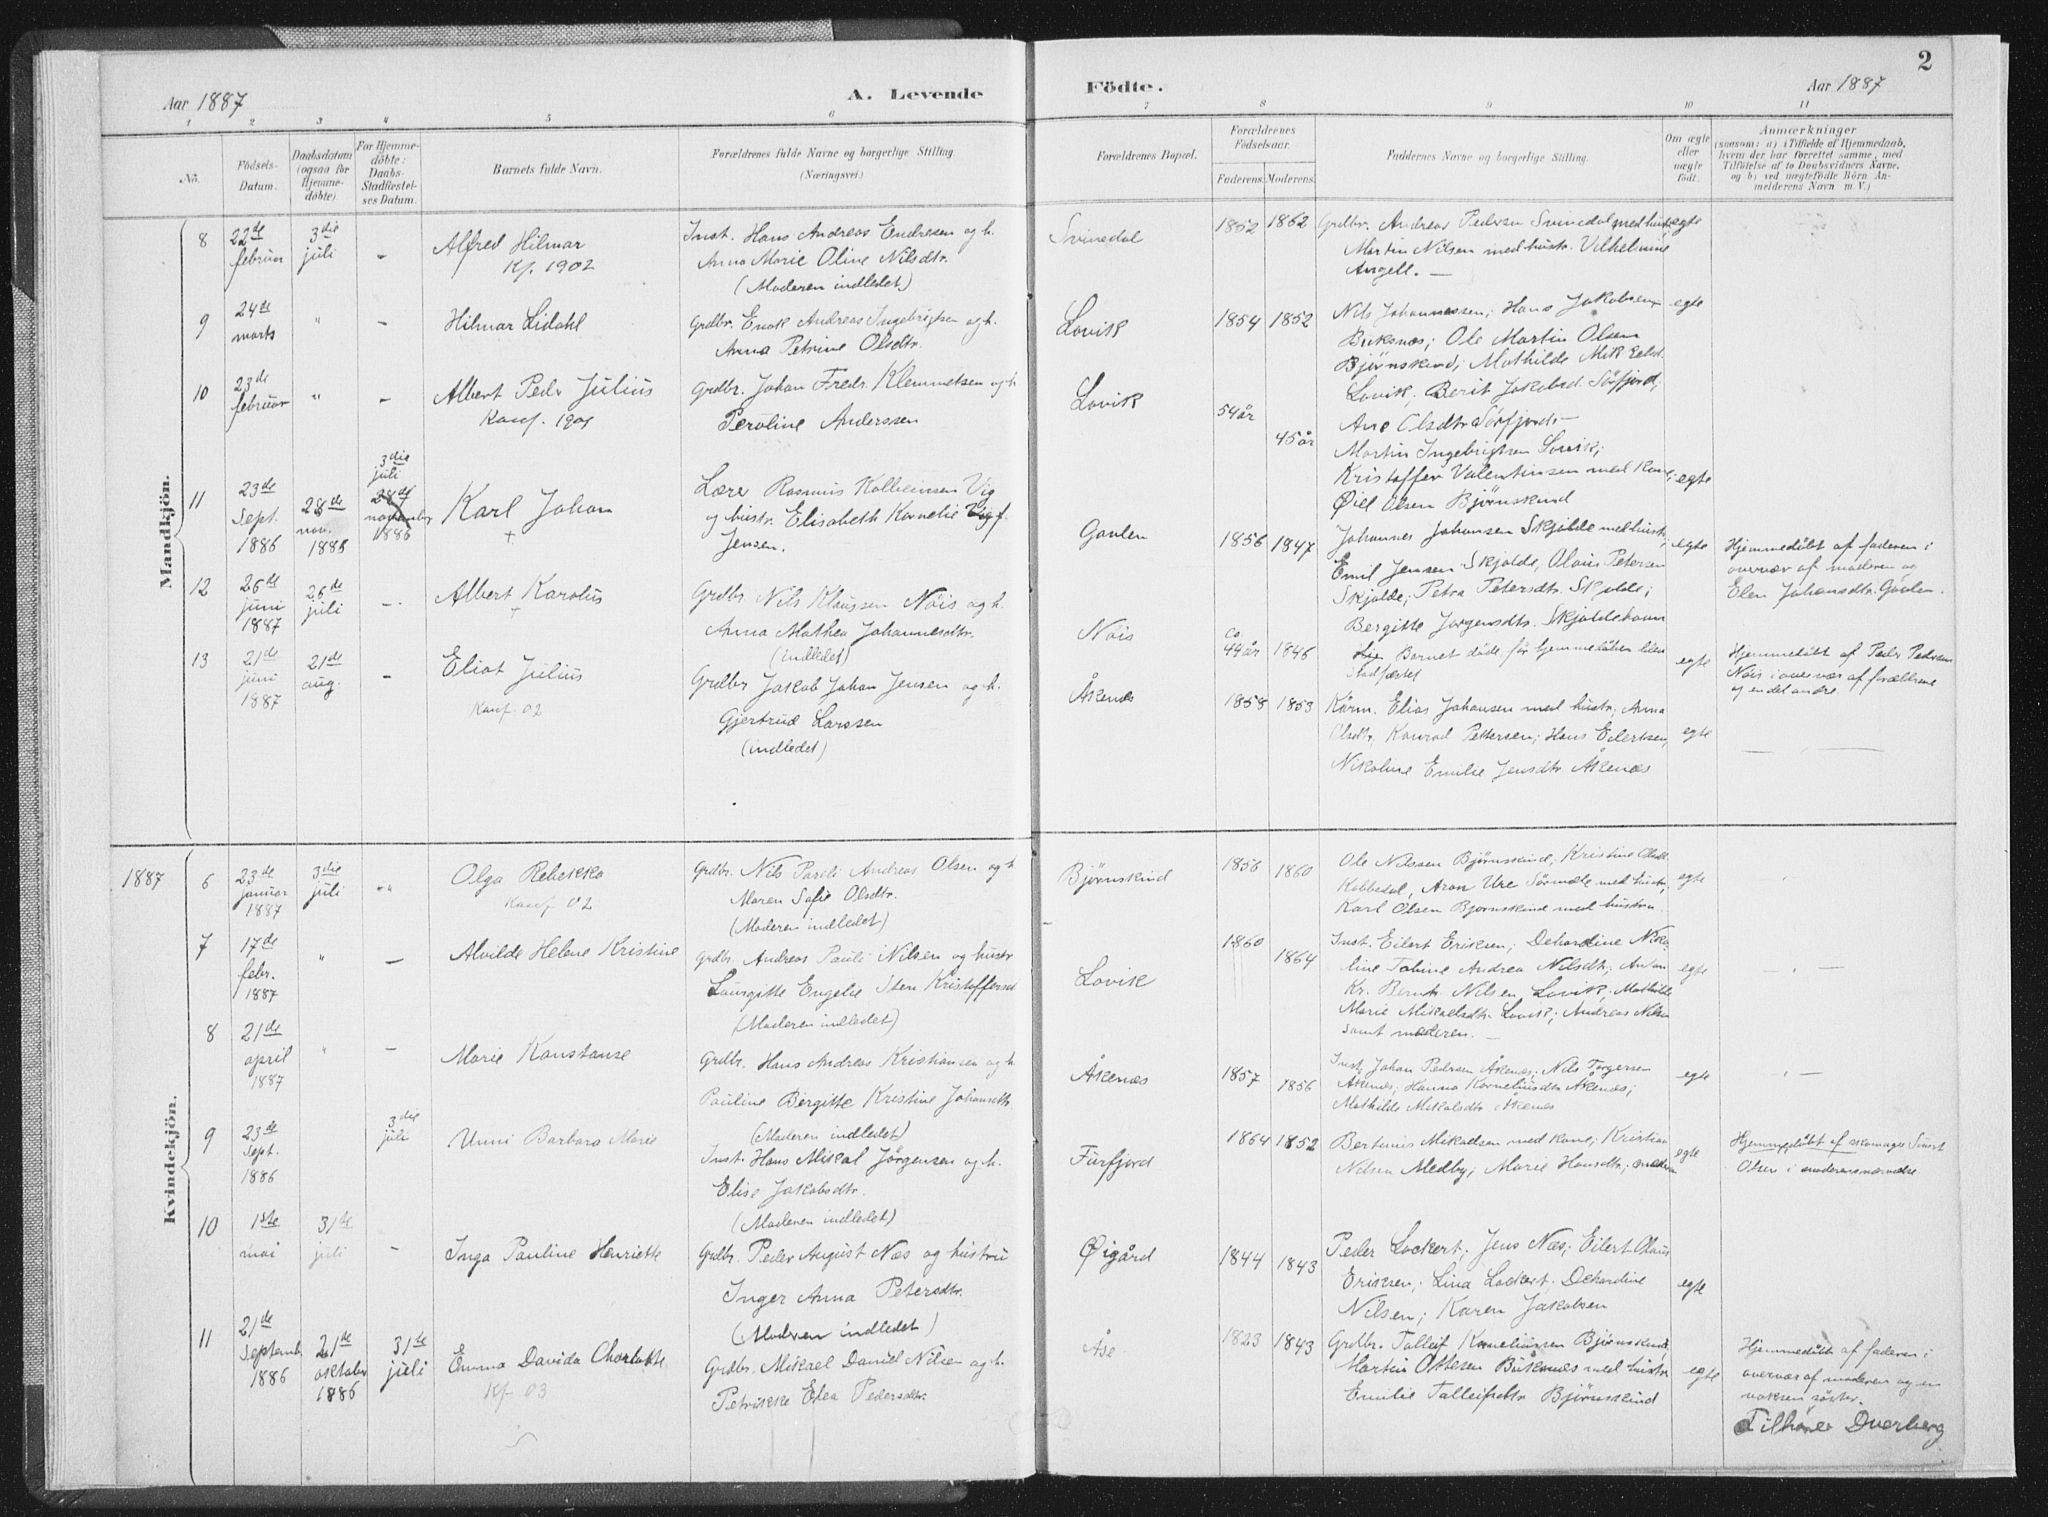 2
Aar 1887
A. Levende
Födte.
Aar 1887
1 2 3 4 5 6 7 8 9 10 11
No.
Födsels-
Datum.
Daabsdatum
(ogsaa for
Hjemme-
döbte)
For Hjemme-
döbte:
Daabs-
Stadfæstel-
ses Datum.
Barnets fulde Navn.
Forældrenes fulde Navne og borgerlige Stilling.
(Næringsvei.)
Forældrenes Bopæl.
Forældrenes
Födselsaar.
Faderens.
Moderens.
Faddernes Navne og borgerlige Stilling.
Om ægte
eller
uægte
födt.
Anmærkninger
(saasom: a) i Tilfælde af Hjemmedaab,
hvem der har forrettet samme, med
Tilföielse af to Daabsvidners Navne.
og b) ved uægtefödte Börn An-
melderens Navn m. V.)
Mandkjön.
8
22de
februar
3die
juli
-
Alfred Hilmar
Kf. 1902
Inst. Hans Andreas Endresen og h.
Anna Marie Oline Nilsdtr.
(Moderen indledet)
Svinedal
1852 1862
Grdbr. Andreas Pedersen Svinedal med hustr
Martin Nilsen med hustr. Vilhelmine
Angell. —
egte
9
24de
marts
"
-
Hilmar Lidahl
Grdbr. Enok Andreas Ingebrigtsen og h.
Anna Petrine Olsdtr.
Lovik
1854 1852
Nils Johannessen; Hans Jakobsen
Buksnæs; Ole Martin Olsen
Bjørnskind; Mathilde
Lovik. Berit Jakobsd. Sörfjord;
Ane Olsdtr Sörfjord —
egte
10
23de
februar
"
-
Albert Peder Julius
Konf. 1901
Grdbr. Johan Fredr. Klemmetsen og h
Peroline Anderssen
Lovik
54 år
45 år
Martin Ingebrigtsen Lovik;
Kristoffer Valentinsen med kone;
Øiel Olsen Bjørnskind
egte
11
23de
Sept.
1886
28de
nov.
1886
3die
juli
28de
november
1886
Karl Johan
+
Lærer Rasmus Kolbeinsen Vig
og hustr. Elisabeth Kornelie Vig f.
Jensen.
Gavlen
1856 1847
Johannes Johansen Skjolde med hustr;
Emil Jensen Skjolde, Olaus Petersen
Skjolde; Petra Petersdtr. Skjolde;
Bergitte Jørgensdtr. Skjoldehavn
egte
Hjemmedöbt af faderen i
overvær af moderen og
Elen Johansdtr. Gavlen.
12
26de
juni
1887
26de
juli
-
Albert Karolus
+
Grdbr Nils Klaussen Nöis og h.
Anna Mathea Johannesdtr.
(indledet)
Nöis
ca
44 år 1846
Barnet döde för hjemmedåben blev
Stadfæstet
egte
Hjemmedöbt af Peder Pedersen
Nöis i overvær af forældrene
og en del andre
13
21de
juni
1887
21de
aug.
-
Eliot Julius
Konf. 02
Grdbr Jakob Johan Jensen og h.
Gjertrud Larssen
(indledet)
Åkenæs
1858 1853
Elias Johansen med hustr; Anna
Olsdtr, Konrad Pettersen; Hans Eilertsen,
Nikoline Emilie Jensdtr Åkenæs
egte
Kvindekjön.
1887
6
23de
januar
1887
3die
juli
"
Olga Rebekka
Konf 02
Grdbr. Nils Pareli Andreas Olsen og h
Maren Sofie Olsdtr.
(Moderen indledet)
Bjørnskind
1856 1860
Ole Nilssen Bjørnskind; Kristine Olsdtr
Kobbedal, Aron Ure Sörmæle med hustr,
Karl Olsen Bjørnskind med hustru.
egte
7
17de
febr.
1887
"
-
Alvilde Helene Kristine
Grdbr. Andreas Pauli Nilsen og hustr
Laurgitte Engelie Iten Kristoffersen
(Moderen indledet)
Lovik
1860 1864
Inst. Eilert Eriksen; Dehardine Niko-
line Tobine Andrea Nilsdtr; Anton
Kr. Bernt Nilsen Lovik; Mathilde
Marie Mikaelsdtr Lovik; Andreas Nilsen
samt moderen. —
egte
8
21de
april
1887
"
-
Marie Konstanse
Grdbr. Hans Andreas Kristiansen og h
Pauline Bergitte Kristine Johansdtr
(Moderen indledet)
Åkenæs
1857 1856
Inst. Johan Pedersen Åkenæs; Nils Torgersen
Åkenæs; Hanna Korneliusdtr Åkenæs;
Mathilde Mikalsdtr Åkenæs
egte
9
23de
Sept.
1886
3die
juli
Unni Barbara Marie
Inst. Hans Mikal Jørgensen og h.
Elise Jakobsdtr.
(Moderen indledet)
Furfjord
1864 1852
Bertinus Mikaelsen med kone; Kristian
Nilsen Medby; Marie Hansdtr; moderen
egte
Hjemmedöbt af skomager Sivert
Olsen i moderens nærværelse
10
1ste
mai
31te
juli
-
Inga Pauline Henriette
Grdbr. Peder August Næs og hustru
Inger Anna Petersdtr.
(Moderen indledet)
Øigård
1844 1843
Peder Lockert; Jens Næs; Eilert Olaus
Eriksen; Lina Lockert. Dehardine
Nilsen; Karen Jakobsen
egte
11
21de
Septemb.
1886
21de
oktober
1886
31te
juli
Emma Davida Charlotte
Kf. 03
Grdbr. Mikael Daniel Nilsen og h.
Petrikke Elea Pedersdtr.
Åse
1823 1843
Grdbr. Tolleif Korneliussen Bjørnskind
Martin Ottesen Buksnæs med hustr
Emilie Tolleifsdtr Bjørnskind
egte
Hjemmedöbt af faderen i
overvær af moderen og en
voksen söster.
Tilhörer Dverberg